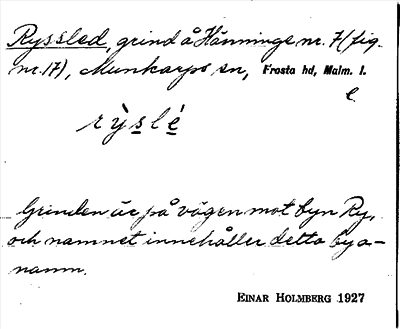 Ryssled, grind å Hänninge nr. 7 (fig.
nr. 17), Munkarps sn, Frosta hd, Malm. l.
e.
rỳslé
Grinden är på vägen mot byn Ry,
och namnet innehåller detta bya-
namn.
EINAR HOLMBERG 1927